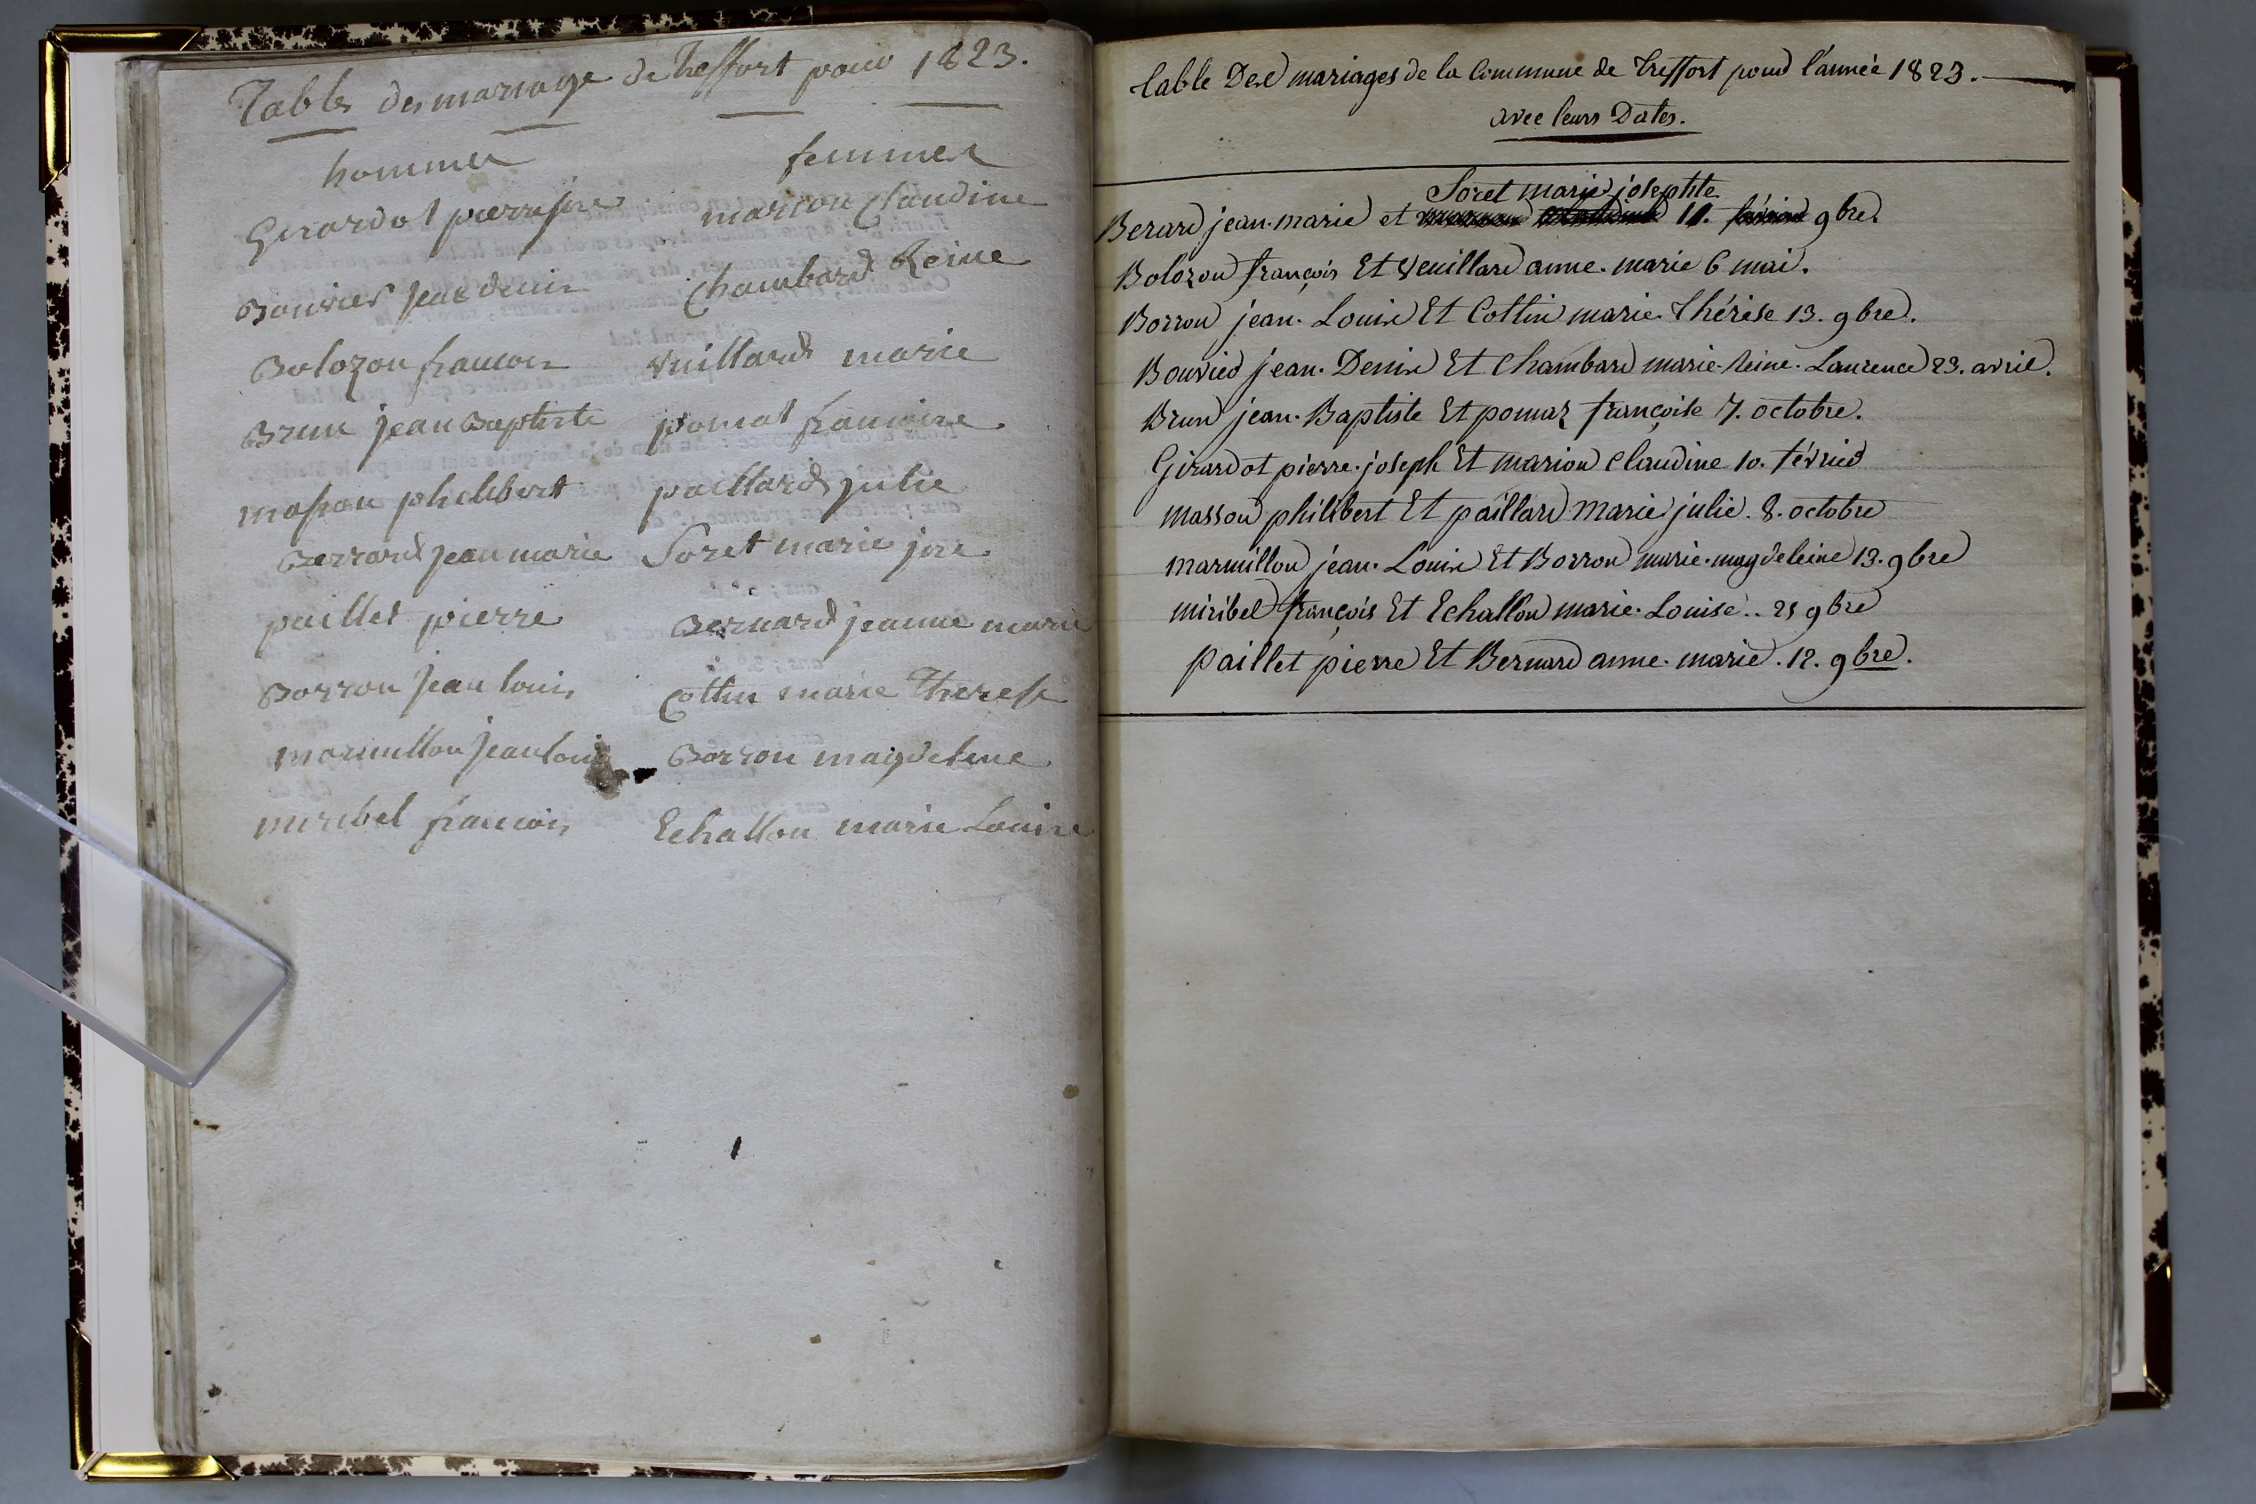 Tables des mariage de Treffort pour 1823.
hommes femmes
Girardot pierre jph marion Claudine
Bouvier jean denis Chambard Reine
Bolozon francois Vuillard marie
Brun jean Baptiste pomat francoise
masson philibert paillard julie
Berrard jean marie Soret marie jphe
paillet pierre Bernard jeanne marie
Borron jean louis Cottin marie Therese
marmillon jean louis Borron magdeleine
miribel francois Echallon marie Louise
Table Des mariages de la Commune de Treffort pour l'année 1823.
avec leurs Dates.
Soret marie josephte
Berard jean-marie et 11. 9bre.
Bolozon françois Et Veuillard anne-marie 6 mai.
Borron jean-Louis Et Cottin marie-Thérèse 13. 9bre.
Bouvier jean-Denis Et Chambard marie-Reine-Laurence 23. avril.
Brun jean-Baptiste Et pomaz françoise 7. octobre.
Girardot pierre-joseph Et marion Claudine 10. février
masson philibert Et paillard marie julie. 8. octobre
marmillon jean-Louis Et Borron marie-magdeleine 13. 9bre
miribel françois Et Echallon marie-Louise .. 25 9bre
paillet pierre Et Bernard anne-marie. 12. 9bre.